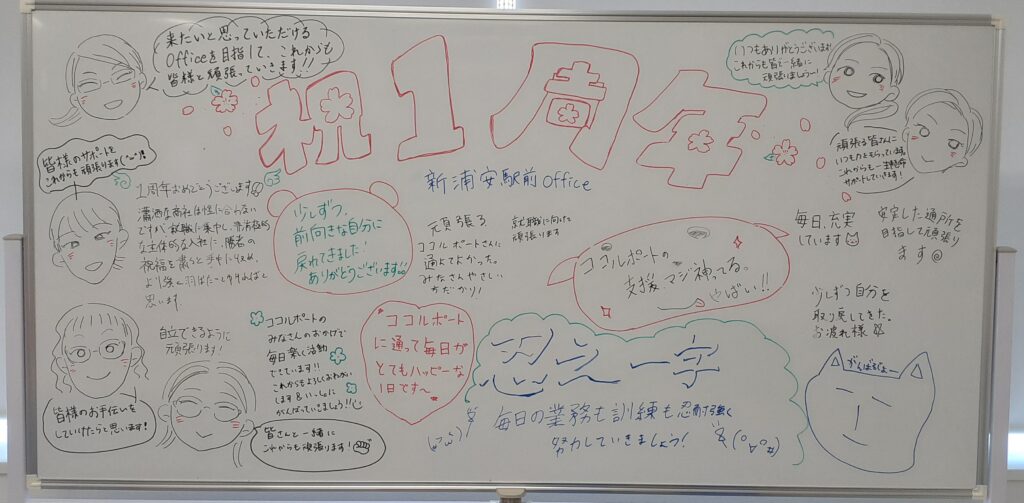 来たいと思っていただける
Officeを目指して、これからも
皆様と頑張っていきます!!
祝1周年
新浦安駅前Office
いつもありがとうございます!
これからも皆で一緒に
頑張りましょうー!
頑張る皆さんに
いつも力をもらっています。
これからも一生懸命
サポートしていきます!
皆様のサポートを
これからも頑張ります
1周年おめでとうございます
祝福を
思います
少しずつ、
前向きな自分に
戻れてきました!
ありがとうございます
元気張る
ココルポートさんに
通えてよかった。
みなさんやさしい
就職に向けて
頑張ります
ココルポートの
支援、マジ神ってる。
やばい!!
毎日、充実
しています
安定した通所を
目指して頑張り
ます@
少しずつ自分を
取り戻してきた。
お疲れ様
自立できるように
頑張ります!
ココルポートの
みなさんのおかげで
毎日楽しく活動
できています!!
これからもよろしくおねがい
します&いっしょに
がんばっていきましょう!!
ココルポート
に通って毎日が
とてもハッピーな
1日です〜
一字
毎日の業務も訓練も忍耐強く
努力していきましょう!
がんばるぞょー
皆様のお手伝いを
していけたらと思います!
皆さんと一緒に
これからも頑張ります!